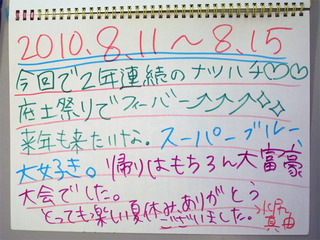 2010.8.11〜8.15
今回で2年連続のナツハチ♡♡
府土祭りでフィーバー↑↑↑✧✧
来年も来たいな。スーパーブルー、
大好き。帰りはもちろん大富豪
大会でした。
とっても楽しい夏休み、ありがとう
ございました。
真由